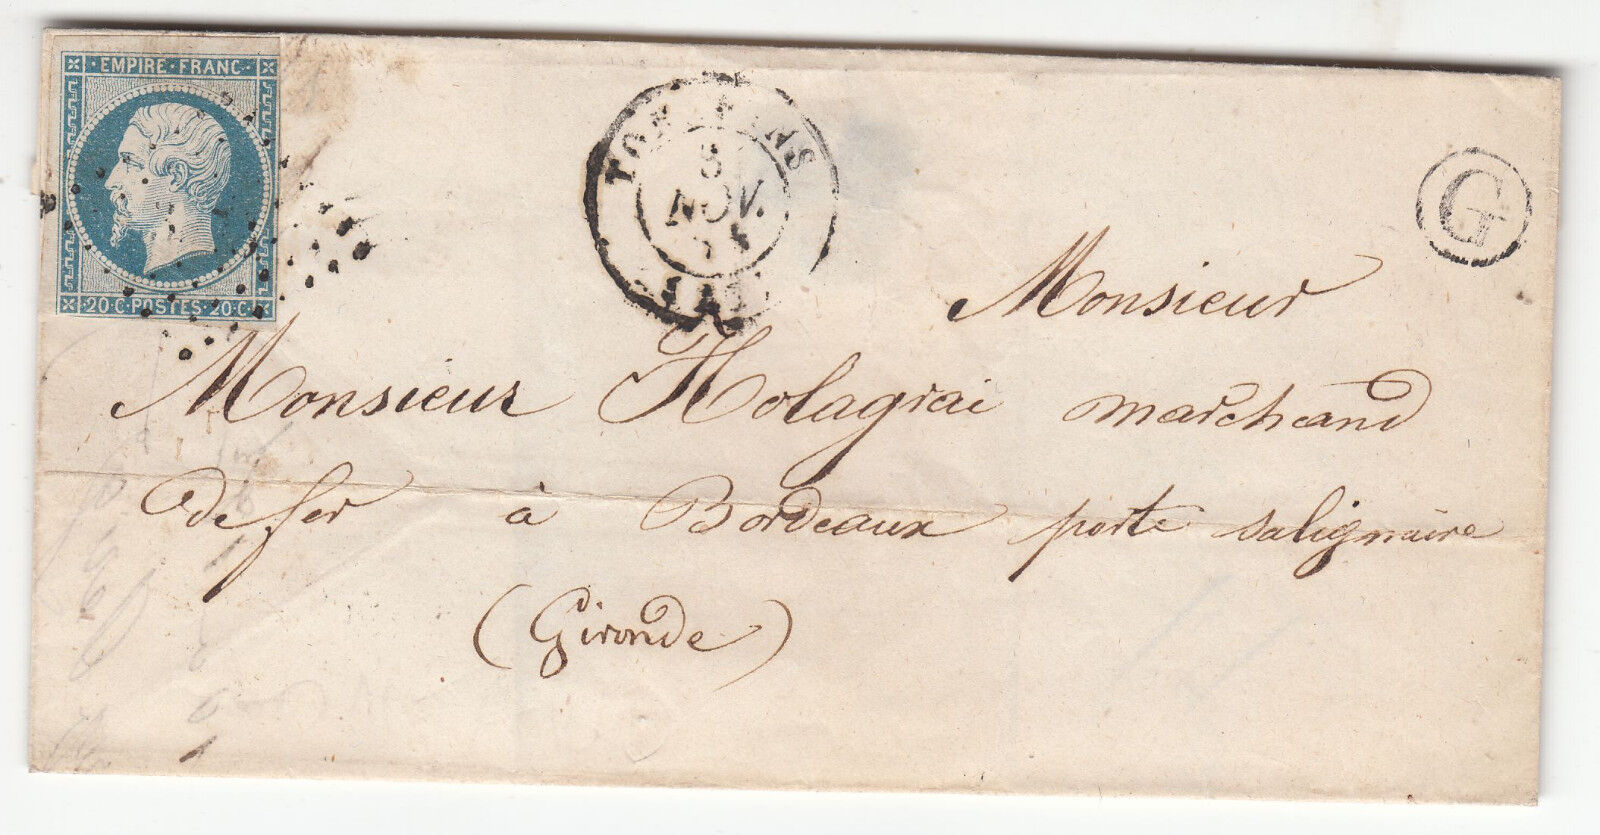 EMPIRE · FRANC ·
20 · C · POSTES · 20 · C ·
8
NOV.
G
Monsieur
Monsieur Holagrai marchand
de fer à Bordeaux porte salignaire
(Gironde)